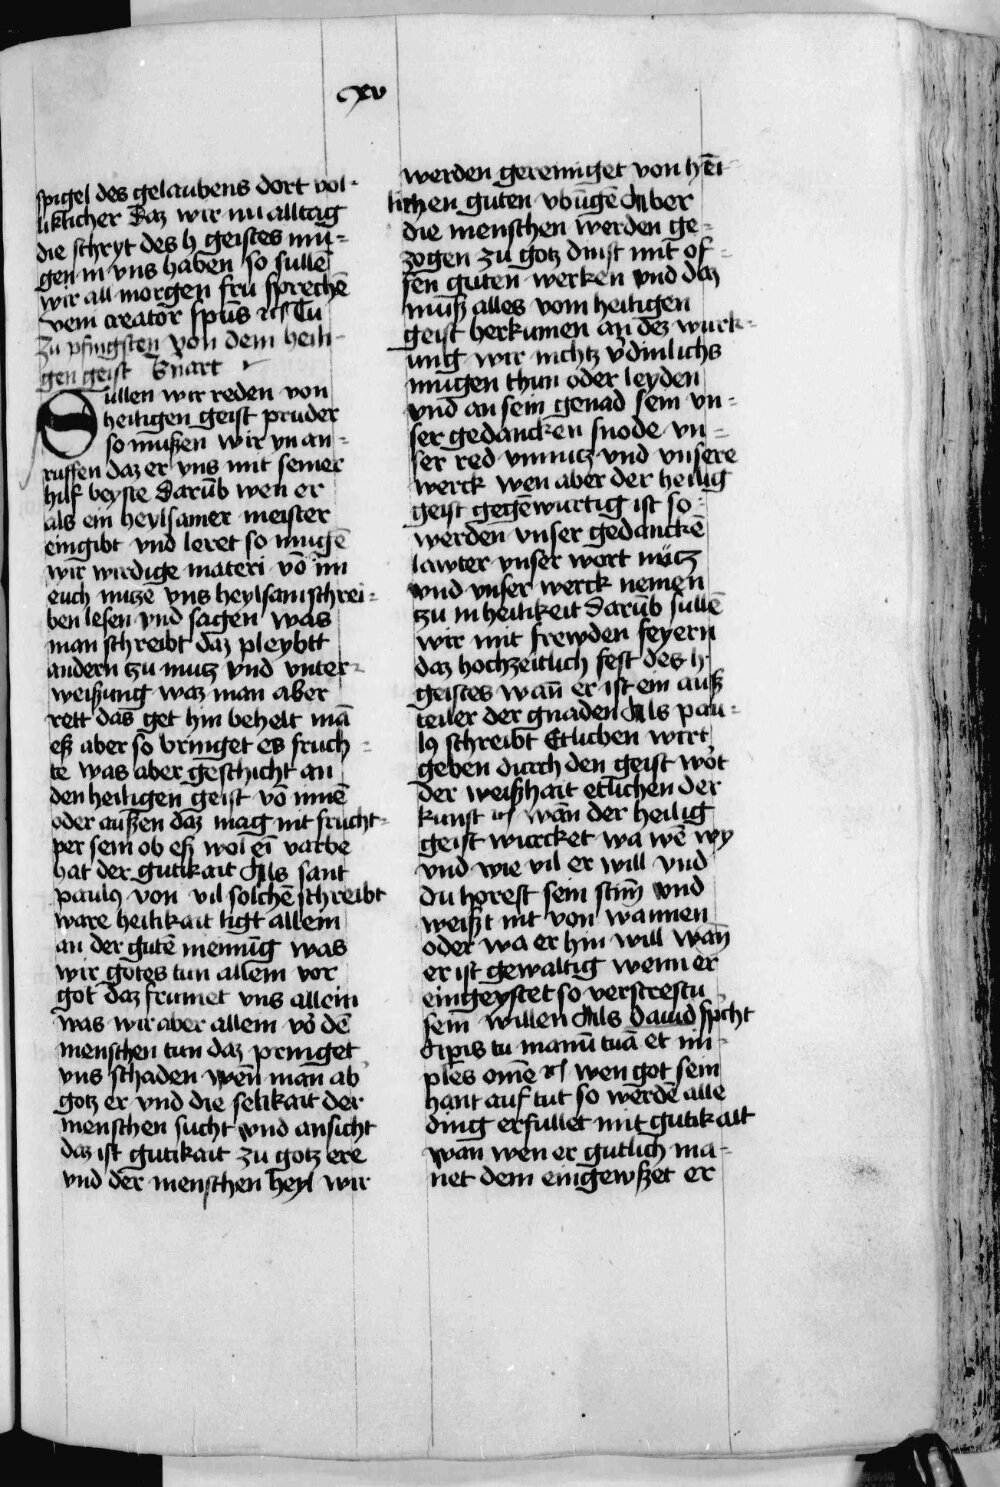 cxv
spigel des gelaubens dort vol-
liklicher Daz wir nu alltag
die schryt des h geistes mu-
gen in vns haben so sulle
wir all morgen fru sprechē
veni creator spūs
zu pfingsten von dem heili-
gen geist
Sullen wir reden von
heiligen geist pruder
so mußen wir yn an-
ruffen daz er vns mit seiner
hilf beyste darūb wen er
als ein heylsamer meister
eingibt vnd leret so mugē
wir wirdige materi vō im
euch nutzē vns heylsam schrei-
ben lesen vnd sagen was
man schreibt daz pleybtt
andern zu nutz vnd vnter-
weißung waz man aber
rett das get hin behelt mā
eß aber so bringet es fruch-
te was aber geschicht an
den heiligen geist vō innē
oder außen daz mag nit frucht-
per sein ob eß wol eī varbe
hat der gutikait Als sant
paulꝰ von vil solchē schreibt
ware heilikait ligt allein
an der gutē meinūg was
wir gotes tun allein vor
got daz frumet vns allein
was wir aber allein vō dē
menschen tun daz pringet
vns schaden wēn man ab
gotz er vnd die selikait der
menschen sucht vnd ansicht
daz ist gutikait zu gotz ere
vnd der menschen heyl wir
werden gereiniget von hēi-
lichen guten vbūgē Aber
die menschen werden ge-
zogen zu gotz dinst mit of-
fen guten werken vnd daz
muß alles vom heiligen
geist herkumen an dez wurk-
ung wir nichtz v̓dinlichs
mugen thun oder leyden
vnd an sein genad sein vn-
ser gedancken snode vn-
ser red vnnutz vnd vnsere
werck wen aber der heilig
geist gegēwurtig ist so
werden vnser gedanckē
lawter vnser wort nütz
vnd vnser werck nemen
zu in heilikeit darūb sullē
wir mit frewden feyern
daz hochzeitlich fest des h
geistes wan̄ er ist ein auß
teiler der gnaden Als pau-
lꝰ schreibt Etlichen wirt
geben durch den geist wōt
der weißhait etlichen der
kunst wān der heilig
geist wurcket wa wē wy
vnd wie vil er will vnd
du horest sein stim̄ vnd
weißt nit von wannen
oder wa er hin will wan̄
er ist gewaltig wenn er
eingeystet so verstrestu
sein willen Als dauid sp̄cht
Aperis tu manū tuā et im-
ples om̄e wen got sein
hant auf tut so werdē alle
ding erfullet mit gutikait
wan wen er gutlich ma-
net dem eingewßet er